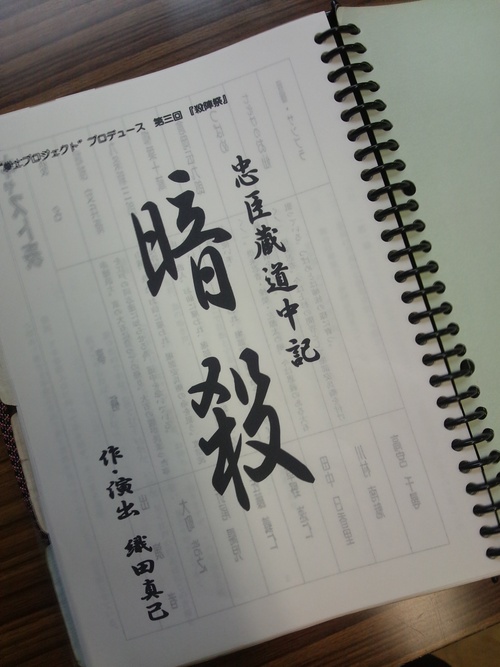 士プロジェクト" プロデュース 第三回『殺陣祭』
忠臣蔵道中記
暗殺
作・演出 織田真己